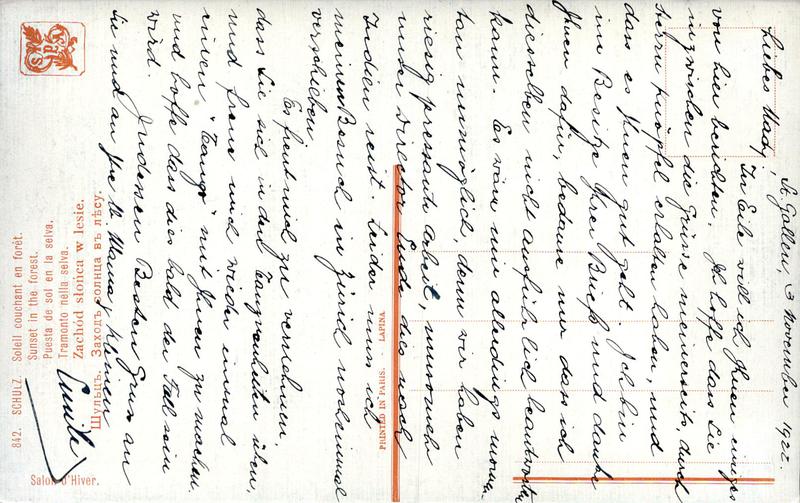 St. Gallen, 3 November 1922.
Liebes Mady,
In Eile will ich Ihnen einige
von hier berichten. Ich hoffe dass Sie
inzwischen die Grüsse meinerseits durch
Herrn erhalten haben, und
dass es Ihnen gut geht. Ich bin
im Besitze Ihrer Brief und danke
Ihnen dafür, bedaure nur dass ich
dieselben nicht ausführlich beantworten
kann. Es wäre mir allerdings momen
tan unmöglich, denn wir haben
riesig pressante Arbeit, umsomehr
unser Director Ende dies nach
Indien reist. Leider muss ich
meinen Besuch in Zürich nochmal
verschieben
Es freut mich zu vernehmen,
dass Sie sich in den Tangoschritten üben,
und freue mich wieder einmal
einen "Tango" mit Ihnen zu machen
und hoffe das dies bald der Fall sein
wird.
Indessen Besten Gruss an
Sie und an Ihre l. Mama
Emile
PRINTED IN PARIS. LAPINA
842. SCHULZ. Soleil couchant en forêt.
Sunset in the forest.
Puesta de sol en la selva.
Tramonto nella selva.
Zachód słońca w lesie.
Шульцъ. Заходъ солнца въ лѣсу.
Salon d'Hiver.